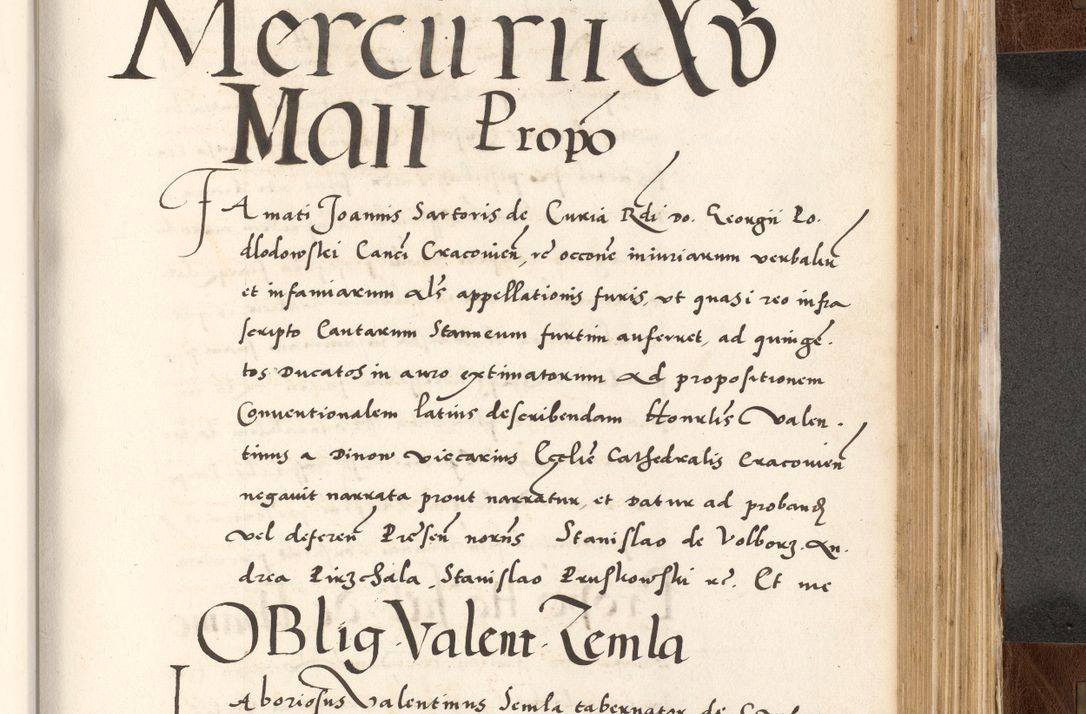 Mercurii XV
Maii Propo
Famati Joannis Sartoris de Curia Rdi Do. Georgii Po.
dlodowski Canci Cracovien, re occone iniuriarum verbaliu
et infamiarum als appellationis furis, ut quasi reo infra
scripto Cantarum Stanneum furtim auferret, ad quinge.
tos Ducatos in auro extimatorum ad propositionem
Conventionalem latius describendam Honrlis Valen.
tinus a Dinow viccarius Ecclie Cathedralis Cracovien
negavit narrata prout narratur, et datur ad proband
vel deferen Presen norns Stanislao de Volborz. An.
drea Pirzchala, Stanislao Pruskowski rc. Et me
OBlig. Valent. Zemla
Laboriosus Valentinus Semla tabernator de